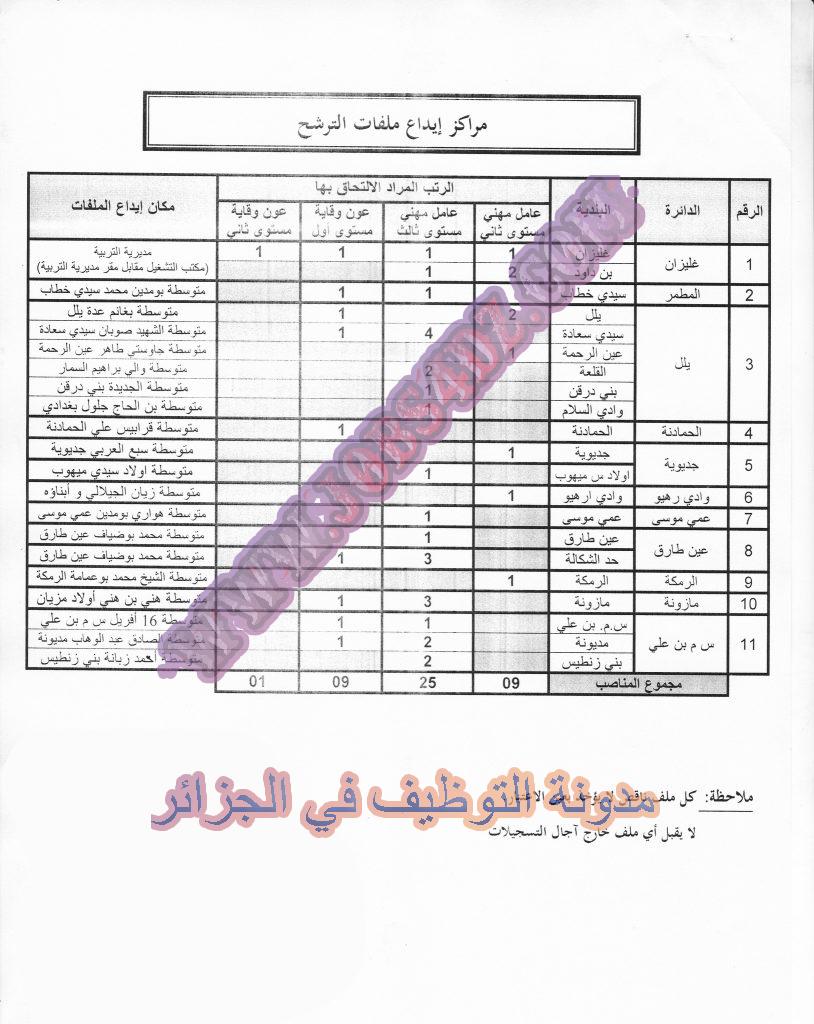 مراكز إيداع ملفات الترشح
الرقم الدائرة البلدية الرتب المراد الالتحاق بها مكان إيداع الملفات
عامل مهني مستوى ثاني عامل مهني مستوى ثالث عون وقاية مستوى أول عون وقاية مستوى ثاني
1 غليزان غليزان 1 1 1 1 مديرية التربية
(مكتب التشغيل مقابل مقر مديرية التربية)
بن داود 2 1
2 المطمر سيدي خطاب 1 1 متوسطة بومدين محمد سيدي خطاب
3 يلل يلل 2 1 متوسطة بغانم عدة يلل
سيدي سعادة 4 1 متوسطة الشهيد صوبان سيدي سعادة
عين الرحمة 1 متوسطة جاوستي طاهر عين الرحمة
القلعة 2 متوسطة والي براهيم السمار
بني درقن 1 متوسطة الجديدة بني درقن
وادي السلام 1 متوسطة بن الحاج جلول بغدادي
4 الحمادنة الحمادنة 1 متوسطة قرابيس علي الحمادنة
5 جديوية جديوية 1 متوسطة سبع العربي جديوية
اولاد س ميهوب 1 متوسطة اولاد سيدي ميهوب
6 وادي رهيو وادي ارهيو 1 متوسطة زيان الجيلالي و أبناؤه
7 عمي موسى عمي موسى 1 متوسطة هواري بومدين عمي موسى
8 عين طارق عين طارق 1 متوسطة محمد بوضياف عين طارق
حد الشكالة 3 1 متوسطة محمد بوضياف عين طارق
9 الرمكة الرمكة 1 متوسطة الشيخ محمد بوعمامة الرمكة
10 مازونة مازونة 3 1 متوسطة هني بن هني أولاد مزيان
11 س م بن علي س.م. بن علي 1 1 متوسطة 16 أفريل س م بن علي
مديونة 2 1 متوسطة الصادق عبد الوهاب مديونة
بني زنطيس 2 متوسطة أحمد زبانة بني زنطيس
مجموع المناصب 09 25 09 01
WWW.JOBS4DZ.COM
ملاحظة: كل ملف ناقص لا يؤخذ بعين الاعتبار
مدونة التوظيف في الجزائر
لا يقبل أي ملف خارج آجال التسجيلات